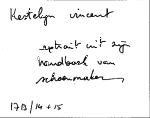 Kestelyn vincent
extrait uit zijn
handboek van
schoenmaker
17B/14+15